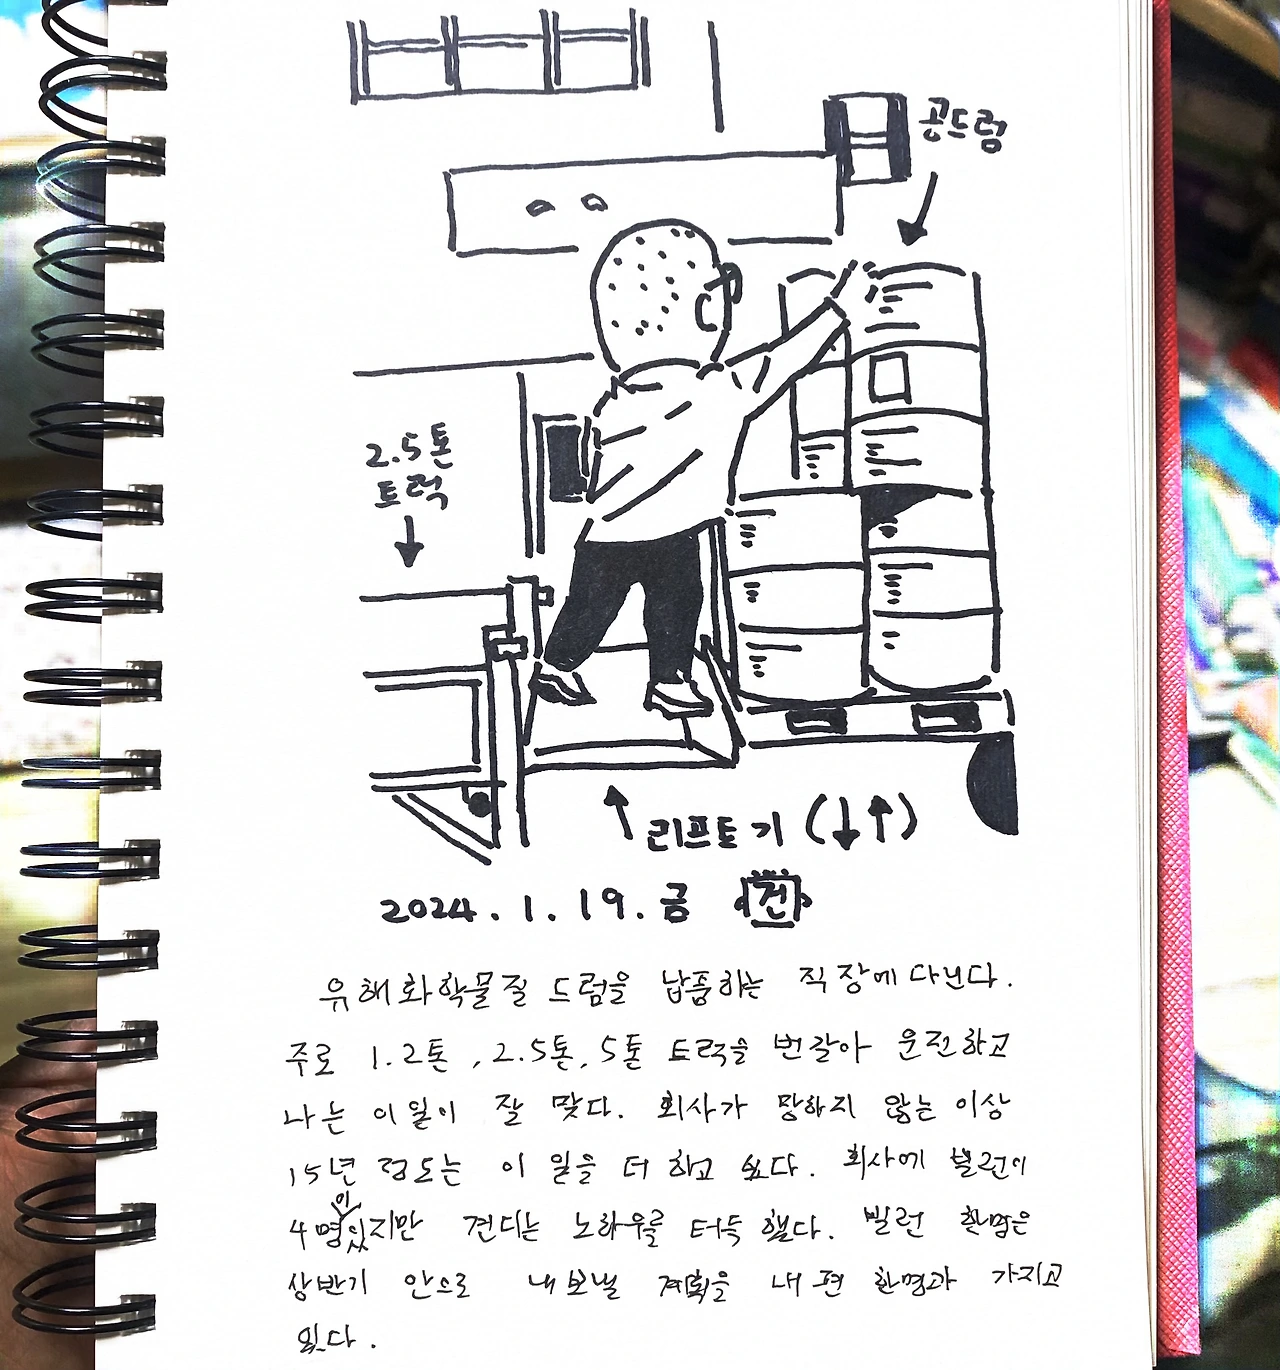 공드럼
2.5톤
트럭
리프트기 (↓↑)
2024.1.19.금 건
유해화학물질 드럼을 납품하는 직장에 다닌다.
주로 1.2톤, 2.5톤, 5톤 트럭을 번갈아 운전하고
나는 이 일이 잘 맞다. 회사가 망하지 않는 이상
15년 정도는 이 일을 더 하고 싶다. 회사에 빌런이
4명이 있지만 견디는 노하우를 터득했다. 빌런 한명은
상반기 안으로 내보낼 계획을 내편 한명과 가지고
있다.